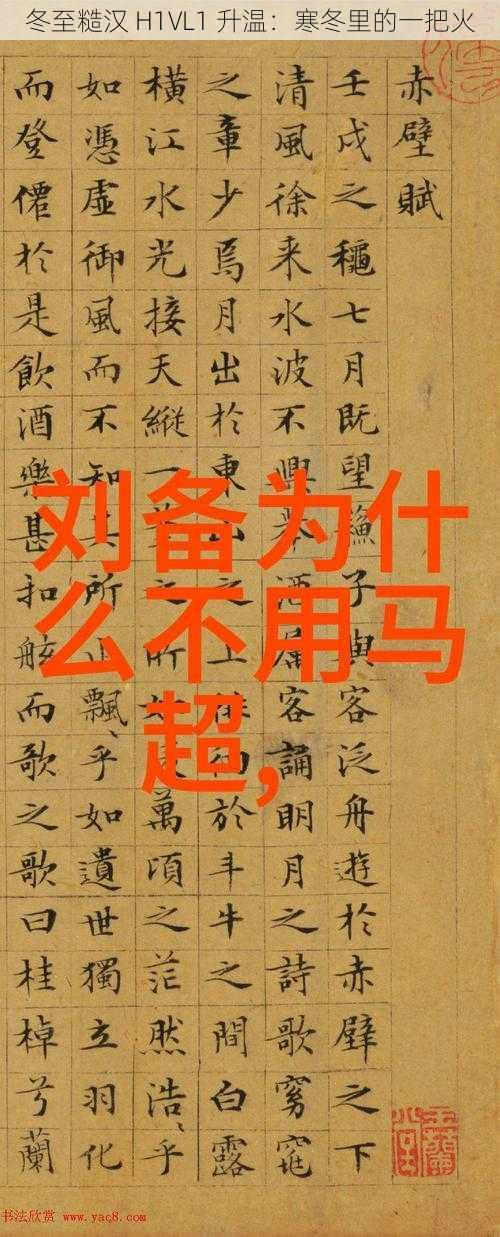 冬至糙汉 H1VL1 升温：寒冬里的一把火
赤壁賦
壬戌之穐七月既望蘓子與客泛舟遊於赤壁之下
清風徐来水波不興舉酒屬客誦明月之詩歌窈窕
之章少焉月出於東山之上徘徊於斗牛之間白露
横江水光接天縱一葦之所如凌萬頃之茫然浩〻乎
如憑虚御風而不知其所止飄〻乎如遺世獨立羽化
而登僊於是飲酒樂甚扣舷而歌之歌曰桂棹兮蘭
刘备为什
么不用马
超,
书法欣赏 www.yac8.com